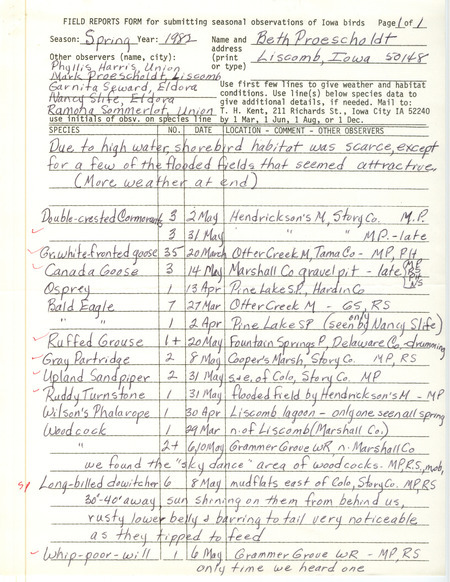 FIELD REPORTS FORM for submitting seasonal observations of Iowa birds Page 1 of 1
Season: Spring Year: 1982 Name and address (print or type) Beth Proescholdt
Liscomb, Iowa 50148
Other observers (name, city):
Phyllis Harris, Union
Mark Proescholdt, Liscomb
Garnita Seward, Eldora
Nancy Slife, Eldora
Ramona Sommerlot, Union
use initials of obsv. on species line
Use first few lines to give weather and habitat
conditions. Use line(s) below species data to
give additional details, if needed. Mail to:
T. H. Kent, 211 Richards St., Iowa City IA 52240
by 1 Mar, 1 Jun, 1 Aug, or 1 Dec.
SPECIES NO. DATE LOCATION - COMMENT - OTHER OBSERVERS
Due to high water, shorebird habitat was scarce, except
for a few of the flooded fields that seemed attractive.
(More weather at end)
Double-crested Cormorant 3 2 May Hendrickson's M, Story Co. M.P.
3 31 May " " MP.-late
Gr. white-fronted goose 35 20 March Otter Creek M, Tama Co - MP, PH
Canada Goose 3 14 May Marshall Co gravel pit - late MP RS NS
Osprey 1 13 Apr Pine Lake SP, Hardin Co
Bald Eagle 7 27 Mar Otter Creek M - GS, RS
" " 1 2 Apr Pine Lake SP (seen only by Nancy Slife)
Ruffed Grouse 1+ 20 May Fountain Springs P, Delaware Co, drumming
Gray Partridge 2 8 May Cooper's Marsh, Story Co. MP, RS
Upland Sandpiper 2 31 May s. + e. of Colo, Story Co. MP
Ruddy Turnstone 1 31 May flooded field by Hendrickson's M - MP
Wilson's Phalarope 1 30 Apr Liscomb lagoon - only one seen all spring
Woodcock 1 29 Mar n. of Liscomb (Marshall Co.)
" 2+ 6,10 May Grammer Grove WR, n. Marshall Co
we found the "sky dance" area of woodcocks. MP, RS,
Long-billed dowitcher 6 8 May mudflats east of Colo, Story Co. MP, RS
30'-40' away, sun shining on them from behind us,
rusty lower belly & barring to tail very noticeable
as they tipped to feed
Whip-poor-will 1 6 May Grammer Grove WR - MP, RS
only time we heard one